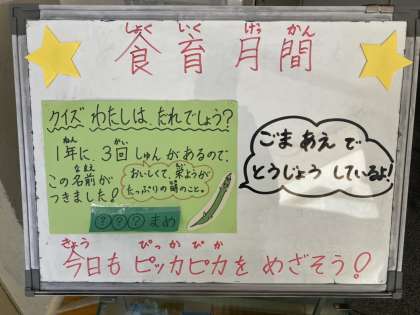 しょく いく げっ かん
食育月間
クイズ わたしは、だれでしょう?
ねん かい
1年に、3回 しゅんがあるので、
なまえ
この名前が
つきました!
おいしくて、栄ようが
たっぷりの時のこと。
???まめ
ごまあえで
とうじょう しているよ!
きょう ぴっかぴか
今日も ピッカピカを めざそう!